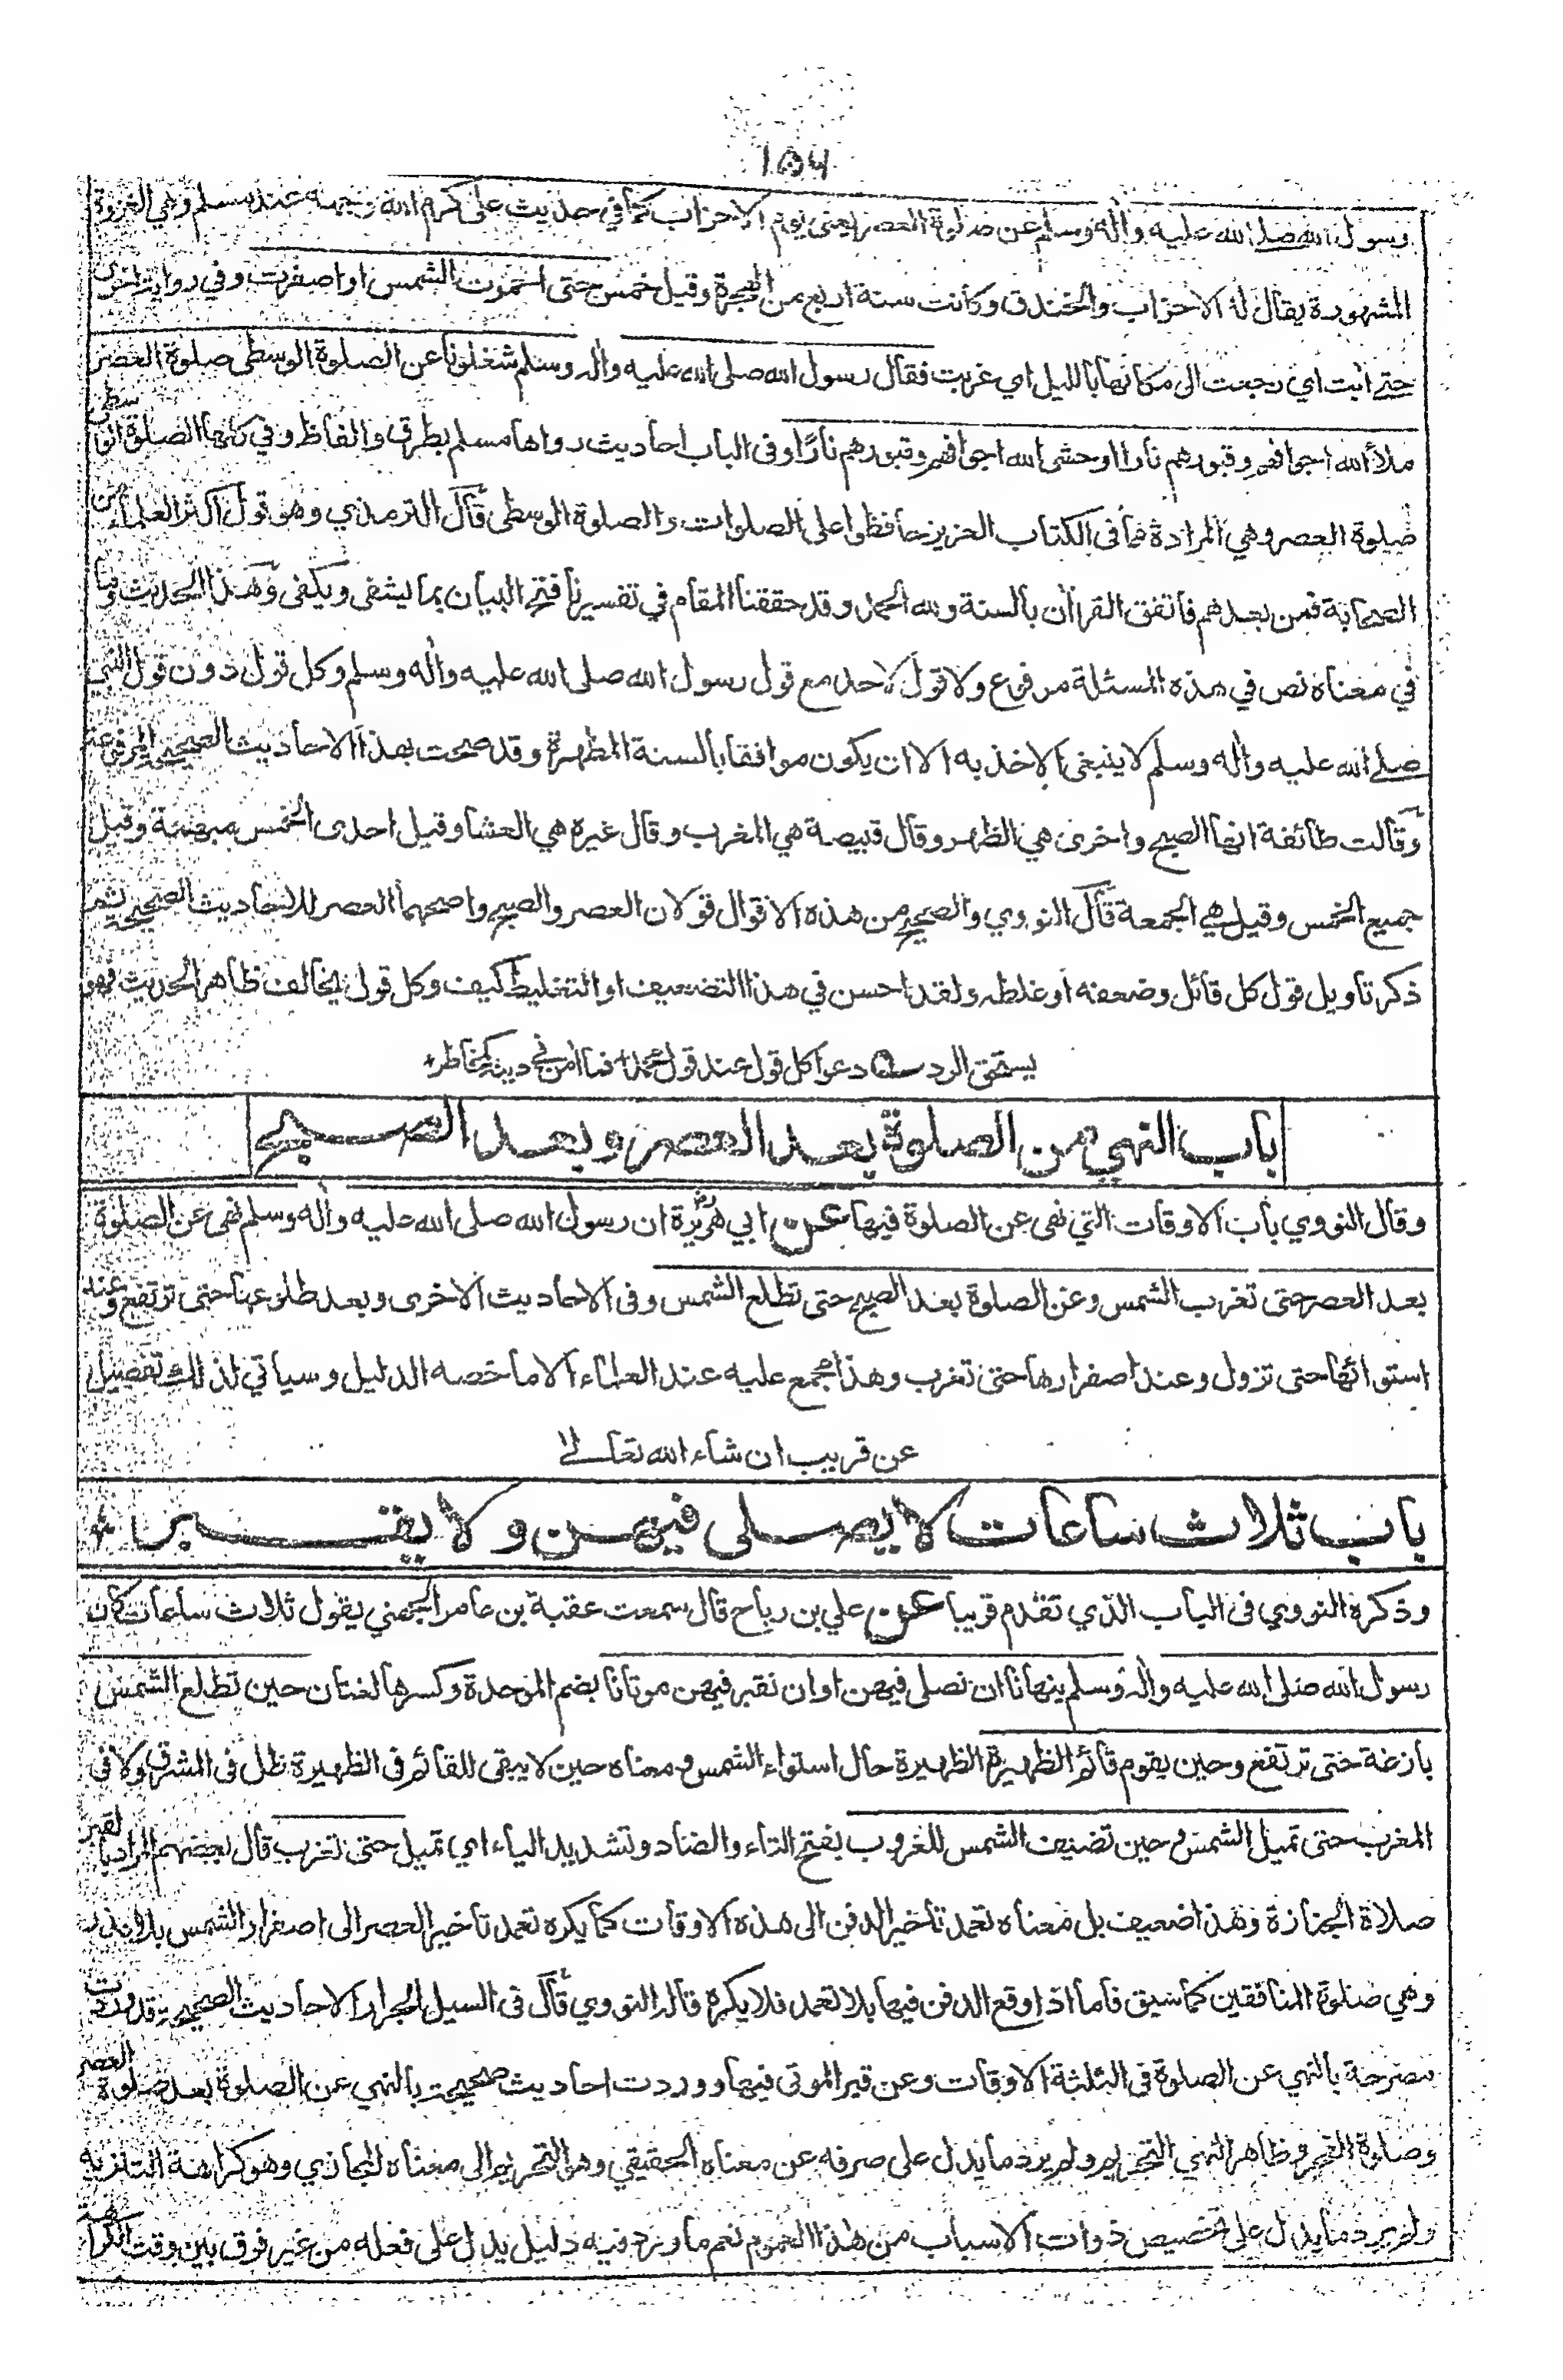 ١٥٦
رسول الله صلى الله عليه واله وسلم عن صلوة العصر يعني يوم الاحزاب كما في حديث علي كرم الله وجهه عند مسلم وهي الغزوة
المشهورة يقال لها الاحزاب والخندق وكانت سنة اربع من الهجرة وقيل خمس حتى احمرت الشمس او اصفرت وفي رواية اخرى
حتى آبت اي رجعت الى مكانها بالليل اي غربت فقال رسول الله صلى الله عليه واله وسلم شغلونا عن الصلوة الوسطى صلوة العصر
ملأ الله اجوافهم وقبورهم نارا او حشى الله اجوافهم وقبورهم نارًا وفى الباب احاديث رواها مسلم بطرق والفاظ وفي كلها الصلوة الوسطى
صلوة العصر وهي المرادة مما فى الكتاب العزيز حافظوا على الصلوات والصلوة الوسطى قال الترمذي وهو قول اكثر العلماء من
الصحابة فمن بعدهم فاتفق القرآن بالسنة ولله الحمد وقد حققنا المقام في تفسيرنا فتح البيان بما يشفى ويكفى وهذا الحديث وما
في معناه نص في هذه المسئلة مرفوع ولا قول لاحد مع قول رسول الله صلى الله عليه واله وسلم وكل قول دون قول النبي
صلى الله عليه واله وسلم لا ينبغي الاخذ به الا ان يكون موافقا بالسنة المطهرة وقد صحت بهذا الاحاديث الصحيحة المرفوعة
وقالت طائفة انها الصبح واخرى هي الظهر وقال قبيصة هي المغرب وقال غيره هي العشا وقيل احدى الخمس مبهمة وقيل
جميع الخمس وقيل هي الجمعة قال النووي والصحيح من هذه الاقوال قولان العصر والصبح واصحهما العصر للاحاديث الصحيحة ثم
ذكر تاويل قول كل قائل وضعفه او غلطه ولقد احسن في هذا التضعيف او التغليط كيف وكل قول يخالف ظاهر الحديث فهو
يستحق الرد ه دعوا كل قول عند قول محمد + فما امن في دينه كمخاطر +
باب النهي عن الصلوة بعد العصر وبعد الصبح
وقال النووي باب الاوقات التي نهى عن الصلوة فيها عن ابي هريرة ان رسول الله صلى الله عليه واله وسلم نهى عن الصلوة
بعد العصر حتى تغرب الشمس وعن الصلوة بعد الصبح حتى تطلع الشمس وفى الاحاديث الاخرى وبعد طلوعها حتى ترتفع وعند
استوائها حتى تزول وعند اصفرارها حتى تغرب وهذا مجمع عليه عند العلماء الا ما خصه الدليل وسياتي لذلك تفصيل
عن قريب ان شاء الله تعالى
باب ثلاث ساعات لا يصلى فيهن ولا يقبر
وذكره النووي فى الباب الذي تقدم قريبا عن علي بن رباح قال سمعت عقبة بن عامر الجهني يقول ثلاث ساعات كان
رسول الله صلى الله عليه واله وسلم ينهانا ان نصلي فيهن او ان نقبر فيهن موتانا بضم الموحدة وكسرها لغتان حين تطلع الشمس
بازغة حتى ترتفع وحين يقوم قائم الظهيرة الظهيرة حال استواء الشمس ومعناه حين لا يبقى للقائم فى الظهيرة ظل فى المشرق ولا فى
المغرب حتى تميل الشمس وحين تضيف الشمس للغروب بفتح التاء والضاد وتشديد الياء اي تميل حتى تغرب قال بعضهم المراد بالقبر
صلاة الجنازة وهذا ضعيف بل معناه تعمد تاخير الدفن الى هذه الاوقات كما يكره تعمد تاخير العصر الى اصفرار الشمس بلا عذر
وهي صلوة المنافقين كما سبق فاما اذا وقع الدفن فيها بلا تعمد فلا يكره قاله النووي قال فى السيل الجرار الاحاديث الصحيحة قد وردت
مصرحة بالنهي عن الصلوة فى الثلثة الاوقات وعن قبر الموتى فيها ووردت احاديث صحيحة بالنهي عن الصلوة بعد صلوة العصر
وصلوة الفجر وظاهر النهي التحريم ولم يرد ما يدل على صرفه عن معناه الحقيقي وهو التحريم الى معناه المجازي وهو كراهة التنزيه
ولم يرد ما يدل على تخصيص ذوات الاسباب من هذا العموم نعم ما ورد فيه دليل يدل على فعله من غير فوق بين وقت الكراهة